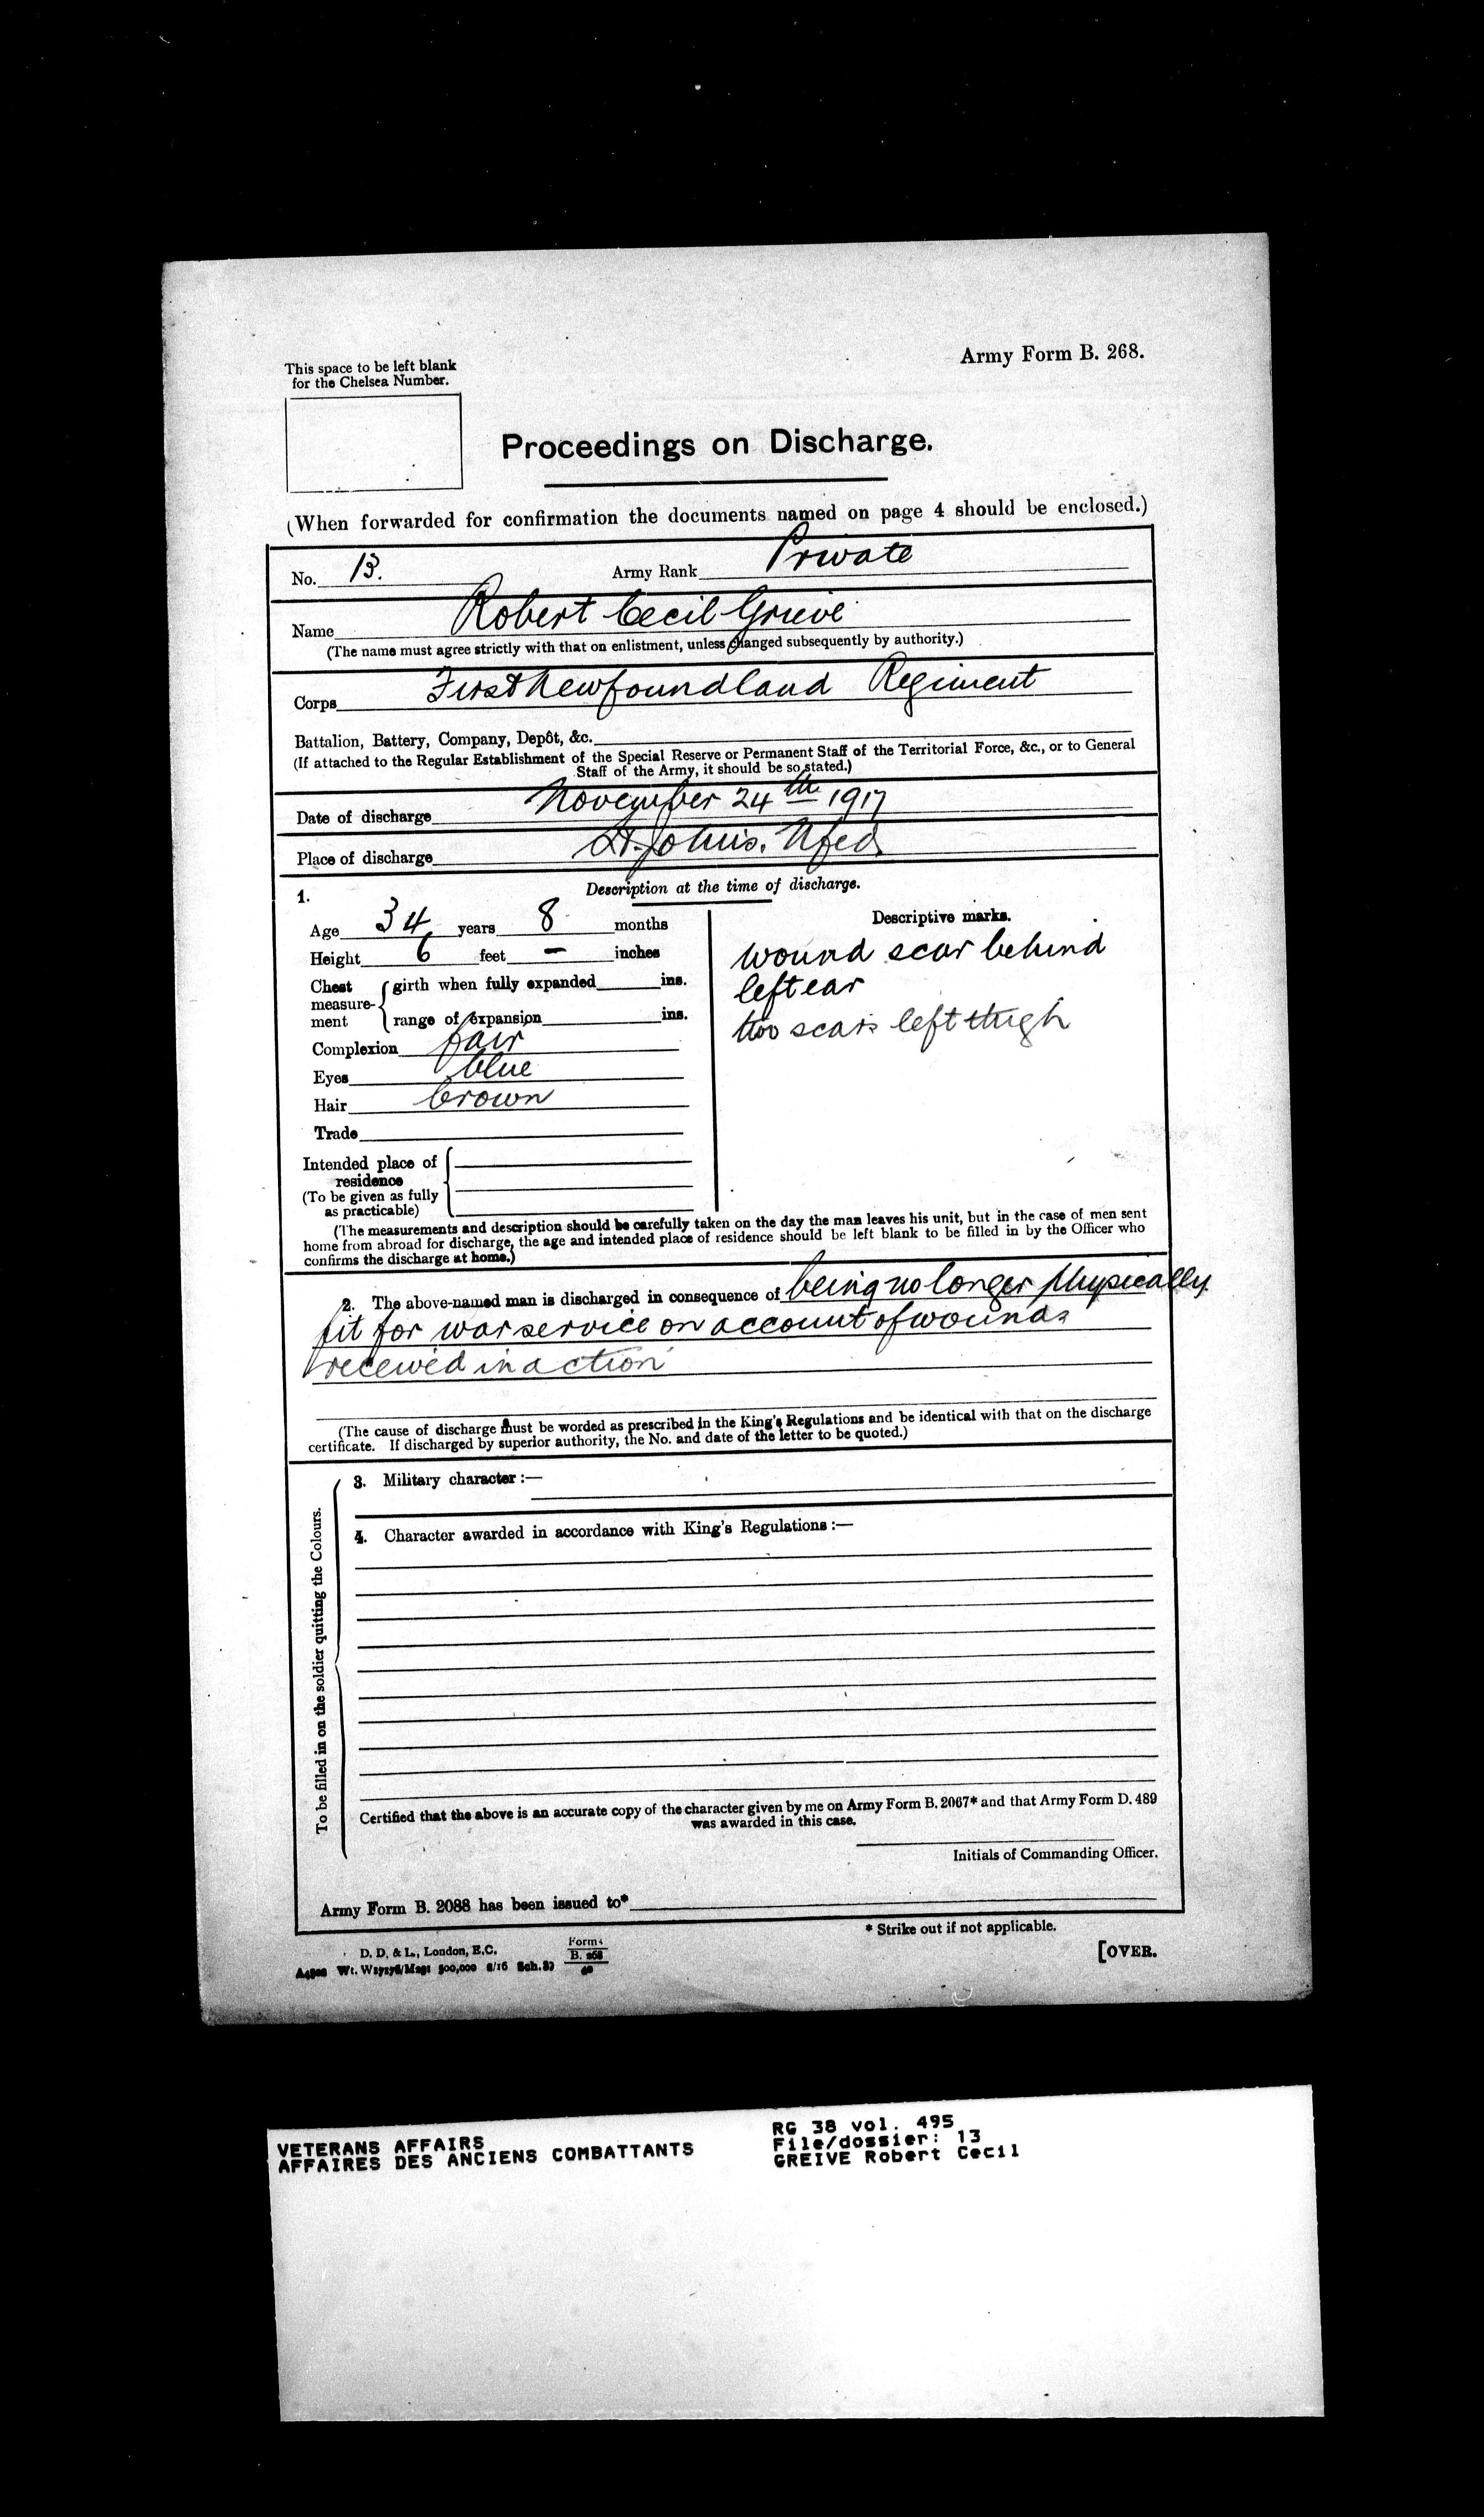 Army Form B. 268.
This space to be left blank
for the Chelsea Number.
Proceedings on Discharge.
(When forwarded for confirmation the documents named on page 4 should be enclosed.)
No. 13. Army Rank Private
Name Robert Cecil Grieve
(The name must agree strictly with that on enlistment, unless changed subsequently by authority.)
Corps First Newfoundland Regiment
Battalion, Battery, Company, Depôt, &c.
(If attached to the Regular Establishment of the Special Reserve or Permanent Staff of the Territorial Force, &c., or to General
Staff of the Army, it should be so stated.)
Date of discharge November 24th 1917
Place of discharge St. John's. Nfld.
1. Description at the time of discharge.
Age 34 years 8 months
Height 6 feet - inches
Chest measurement { girth when fully expanded ins.
range of expansion ins.
Complexion fair
Eyes blue
Hair brown
Trade
Intended place of
residence
(To be given as fully
as practicable)
Descriptive marks.
wound scar behind
left ear
two scars left thigh
(The measurements and description should be carefully taken on the day the man leaves his unit, but in the case of men sent
home from abroad for discharge, the age and intended place of residence should be left blank to be filled in by the Officer who
confirms the discharge at home.)
2. The above-named man is discharged in consequence of being no longer physically
fit for war service on account of wounds
received in action
(The cause of discharge must be worded as prescribed in the King's Regulations and be identical with that on the discharge
certificate. If discharged by superior authority, the No. and date of the letter to be quoted.)
To be filled in on the soldier quitting the Colours.
3. Military character :—
4. Character awarded in accordance with King's Regulations :—
Certified that the above is an accurate copy of the character given by me on Army Form B. 2067* and that Army Form D. 489
was awarded in this case.
Initials of Commanding Officer.
Army Form B. 2088 has been issued to*
* Strike out if not applicable.
D. D. & L., London, E.C.
500,000 8/16 Sch. 
Forms
B. 268
[OVER.
VETERANS AFFAIRS
AFFAIRES DES ANCIENS COMBATTANTS
RG 38 vol. 495
File/dossier: 13
GREIVE Robert Cecil